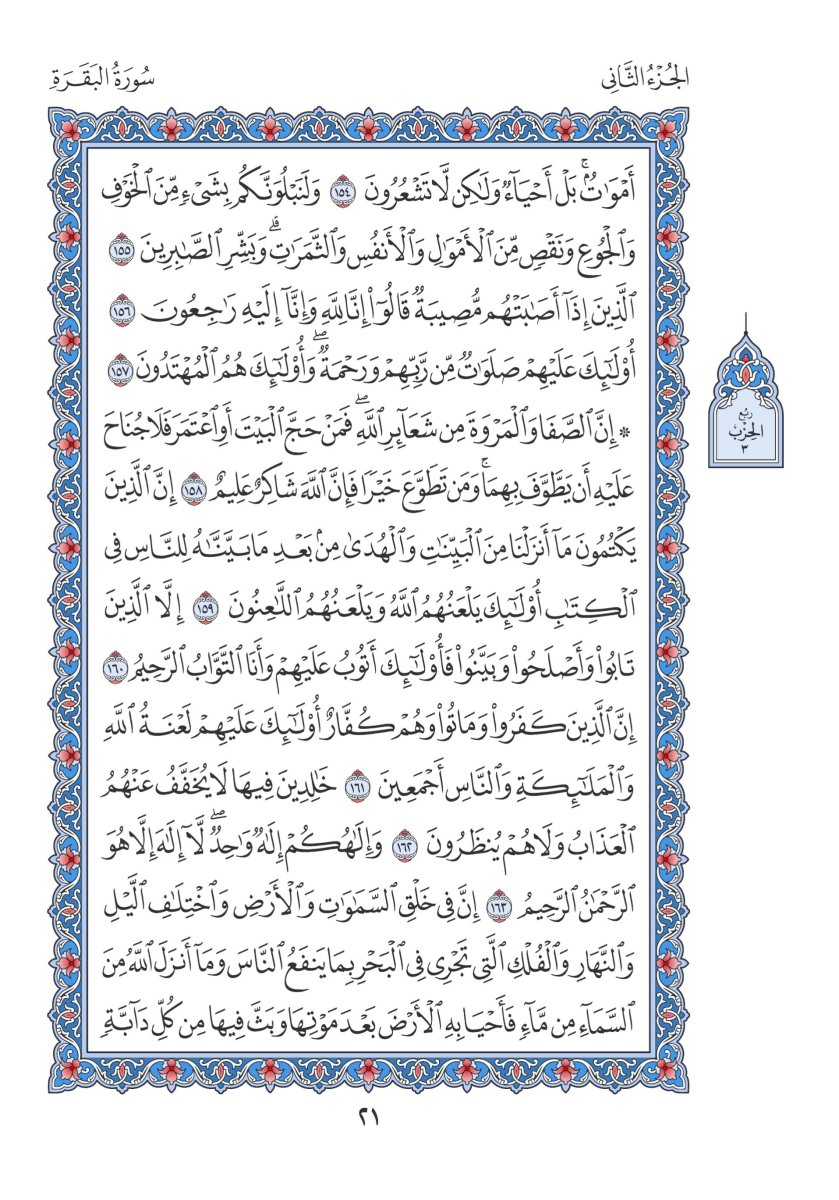 الجُزْءُ الثَّانِى
سُورَةُ البَقَرَةِ
أَمْوَٰتٌۢۚ بَلْ أَحْيَآءٌ وَلَٰكِن لَّا تَشْعُرُونَ ١٥٤ وَلَنَبْلُوَنَّكُم بِشَىْءٍ مِّنَ ٱلْخَوْفِ
وَٱلْجُوعِ وَنَقْصٍ مِّنَ ٱلْأَمْوَٰلِ وَٱلْأَنفُسِ وَٱلثَّمَرَٰتِۗ وَبَشِّرِ ٱلصَّٰبِرِينَ ١٥٥
ٱلَّذِينَ إِذَآ أَصَٰبَتْهُم مُّصِيبَةٌ قَالُوٓا۟ إِنَّا لِلَّهِ وَإِنَّآ إِلَيْهِ رَٰجِعُونَ ١٥٦
أُو۟لَٰٓئِكَ عَلَيْهِمْ صَلَوَٰتٌ مِّن رَّبِّهِمْ وَرَحْمَةٌۖ وَأُو۟لَٰٓئِكَ هُمُ ٱلْمُهْتَدُونَ ١٥٧
۞ إِنَّ ٱلصَّفَا وَٱلْمَرْوَةَ مِن شَعَآئِرِ ٱللَّهِۖ فَمَنْ حَجَّ ٱلْبَيْتَ أَوِ ٱعْتَمَرَ فَلَا جُنَاحَ
عَلَيْهِ أَن يَطَّوَّفَ بِهِمَاۚ وَمَن تَطَوَّعَ خَيْرًا فَإِنَّ ٱللَّهَ شَاكِرٌ عَلِيمٌ ١٥٨ إِنَّ ٱلَّذِينَ
يَكْتُمُونَ مَآ أَنزَلْنَا مِنَ ٱلْبَيِّنَٰتِ وَٱلْهُدَىٰ مِنۢ بَعْدِ مَا بَيَّنَّٰهُ لِلنَّاسِ فِى
ٱلْكِتَٰبِ أُو۟لَٰٓئِكَ يَلْعَنُهُمُ ٱللَّهُ وَيَلْعَنُهُمُ ٱللَّٰعِنُونَ ١٥٩ إِلَّا ٱلَّذِينَ
تَابُوا۟ وَأَصْلَحُوا۟ وَبَيَّنُوا۟ فَأُو۟لَٰٓئِكَ أَتُوبُ عَلَيْهِمْ وَأَنَا ٱلتَّوَّابُ ٱلرَّحِيمُ ١٦٠
إِنَّ ٱلَّذِينَ كَفَرُوا۟ وَمَاتُوا۟ وَهُمْ كُفَّارٌ أُو۟لَٰٓئِكَ عَلَيْهِمْ لَعْنَةُ ٱللَّهِ
وَٱلْمَلَٰٓئِكَةِ وَٱلنَّاسِ أَجْمَعِينَ ١٦١ خَٰلِدِينَ فِيهَا لَا يُخَفَّفُ عَنْهُمُ
ٱلْعَذَابُ وَلَا هُمْ يُنظَرُونَ ١٦٢ وَإِلَٰهُكُمْ إِلَٰهٌ وَٰحِدٌۖ لَّآ إِلَٰهَ إِلَّا هُوَ
ٱلرَّحْمَٰنُ ٱلرَّحِيمُ ١٦٣ إِنَّ فِى خَلْقِ ٱلسَّمَٰوَٰتِ وَٱلْأَرْضِ وَٱخْتِلَٰفِ ٱلَّيْلِ
وَٱلنَّهَارِ وَٱلْفُلْكِ ٱلَّتِى تَجْرِى فِى ٱلْبَحْرِ بِمَا يَنفَعُ ٱلنَّاسَ وَمَآ أَنزَلَ ٱللَّهُ مِنَ
ٱلسَّمَآءِ مِن مَّآءٍ فَأَحْيَا بِهِ ٱلْأَرْضَ بَعْدَ مَوْتِهَا وَبَثَّ فِيهَا مِن كُلِّ دَآبَّةٍ
ربع
الحزب
٣
٢١